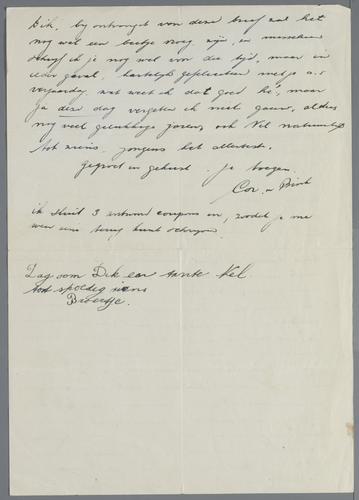 Dik, by ontvangst van deze brief zal het
nog wel een beetje vroeg zijn, en misschien
schryf ik je nog wel voor die tyd, maar in
ieder geval, hartelyk gefeliciteerd met je a.s
verjaardag, wat weet ik dat goed hè, maar
ja deze dag vergeten ik niet gauw, altans
nog veel gelukkige jaren, ook Nel natuurlijk
tot ziens. jongens het allerbeste.
gegroet en gekust. je
Cor. en
ik sluit 3 antwoord coupons in, zodat je me
weer eens terug kunt schryven.
Dag oom Dik en tante Nel
tot spoedig ziens
Broertje.